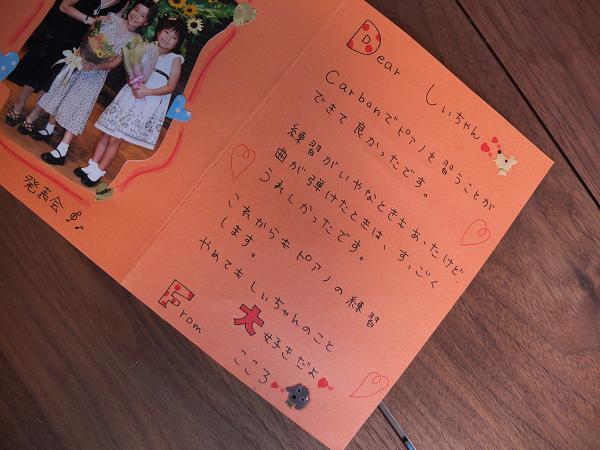 発表会
Dear しぃちゃん
Carbonでピアノを習うことが
できて良かったです。
練習がいやなときもあったけど、
曲が弾けたときは、すっごく
うれしかったです。
これからもピアノの練習
します。
やめてもしぃちゃんのこと
大好きだよ
From こころ